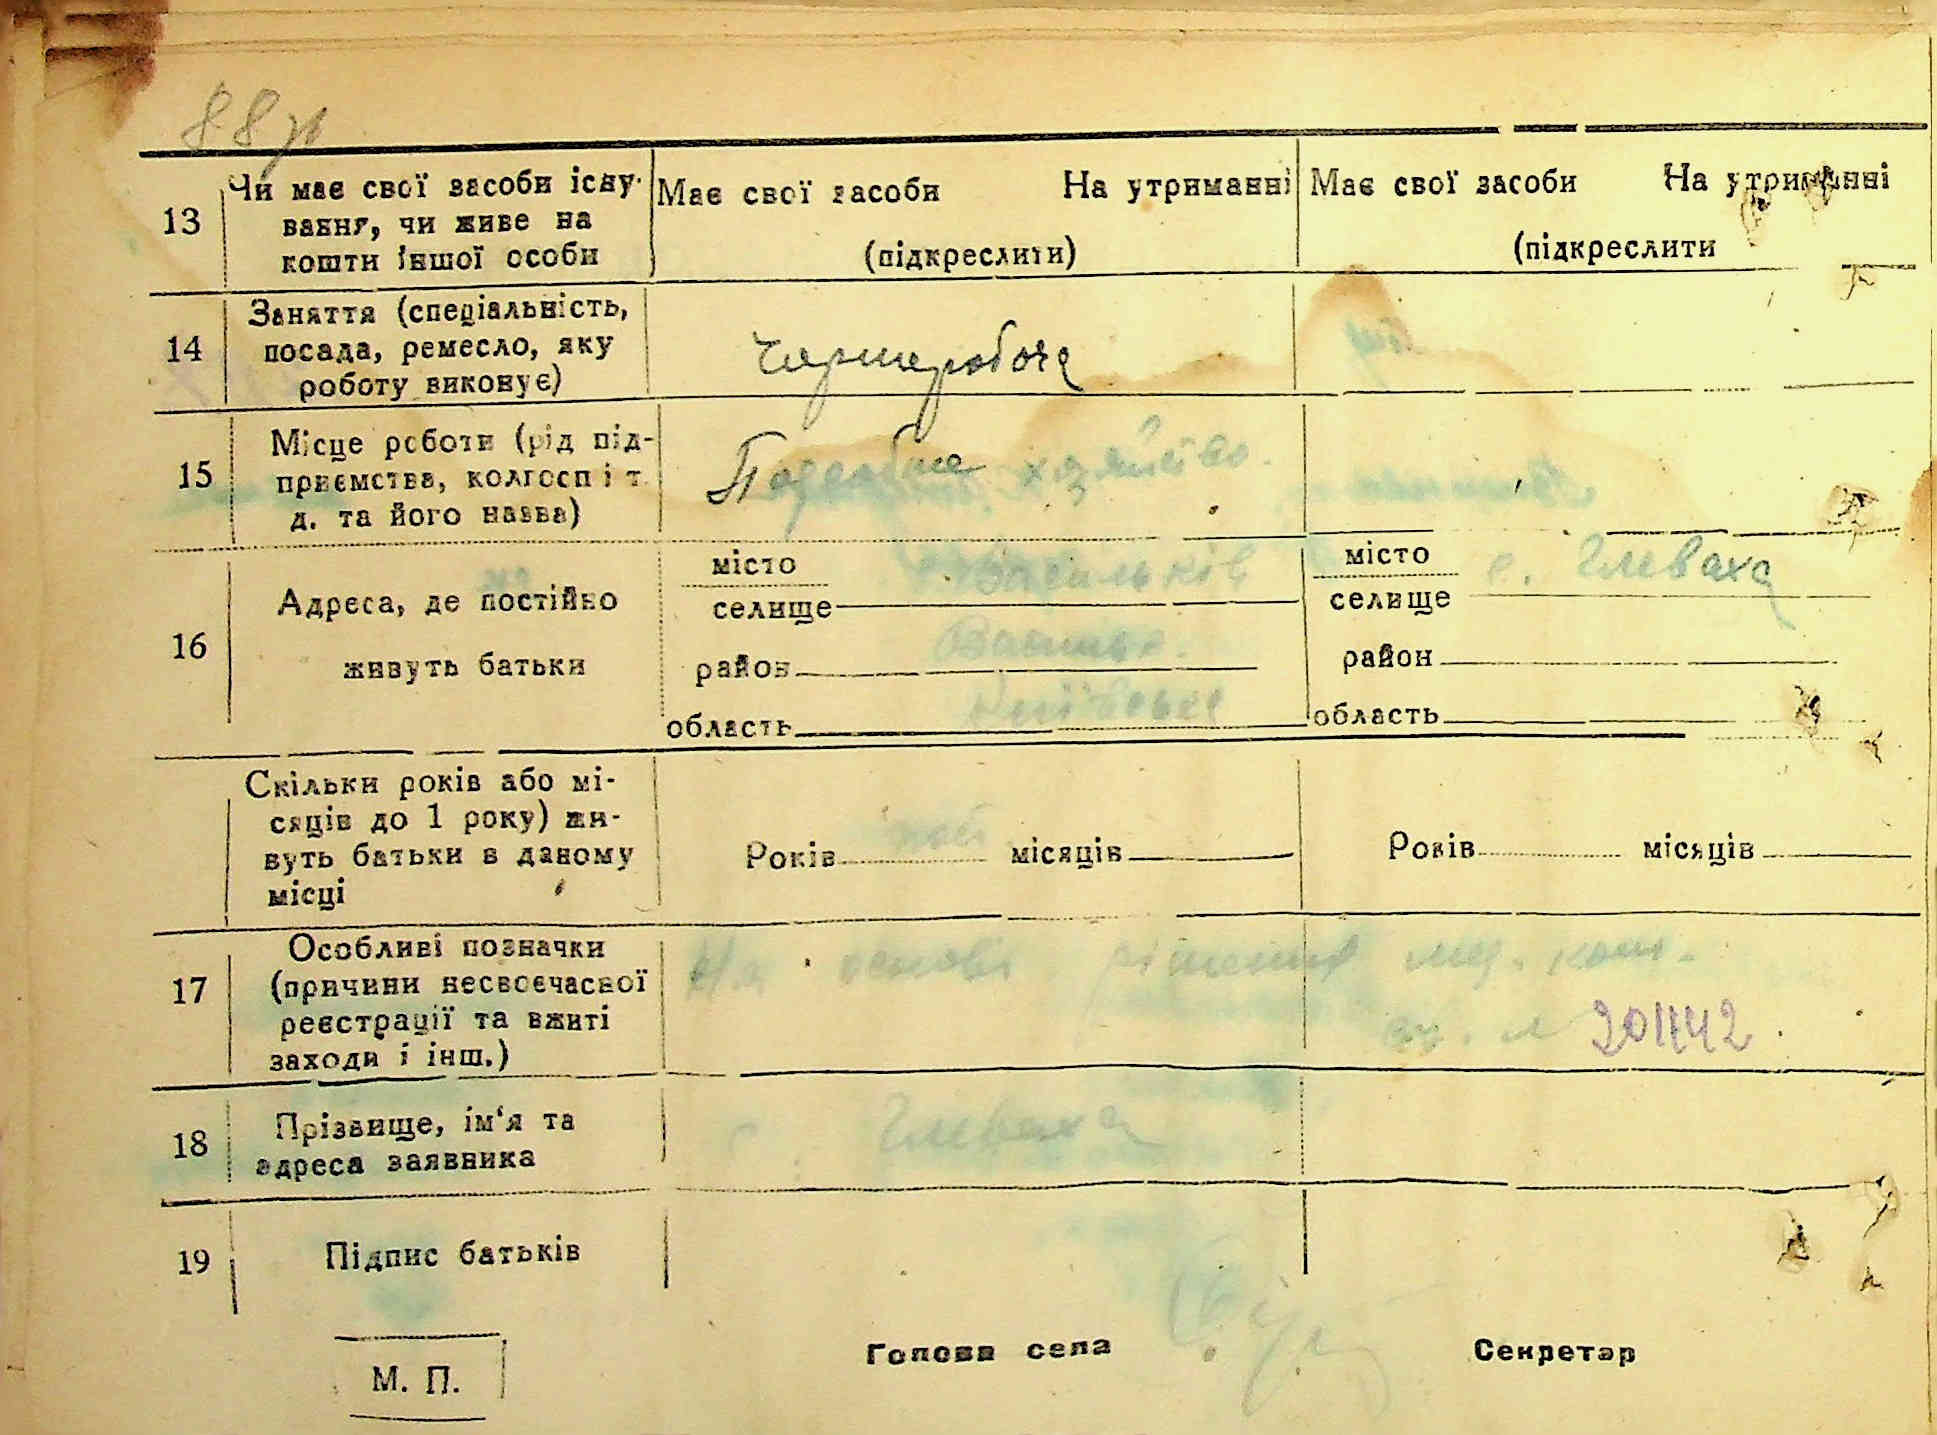 88
13
Чи має свої засоби існу-
вання, чи живе на
кошти іншої особи
Має свої засоби На утриманні
(підкреслити)
Має свої засоби На утриманні
(підкреслити
14
Заняття (спеціальність,
посада, ремесло, яку
роботу виконує)
Чорноробоча
15
Місце роботи (рід під-
приємства, колгосп і т.
д. та його назва)
хазяйство.
16
Адреса, де постійно
живуть батьки
місто
селище
Васильків
район
область
Київська
місто
селище
с. Глеваха
район
область
Скільки років або мі-
сяців до 1 року) жи-
вуть батьки в даному
місці
Років місяців
Років місяців
17
Особливі позначки
(причини несвоєчасної
реєстрації та вжиті
заходи і інш.)
На основі рішення мед. ком.
18
Прізвище, ім'я та
адреса заявника
с. Глеваха
19
Підпис батьків
М. П.
Голова села
Секретар